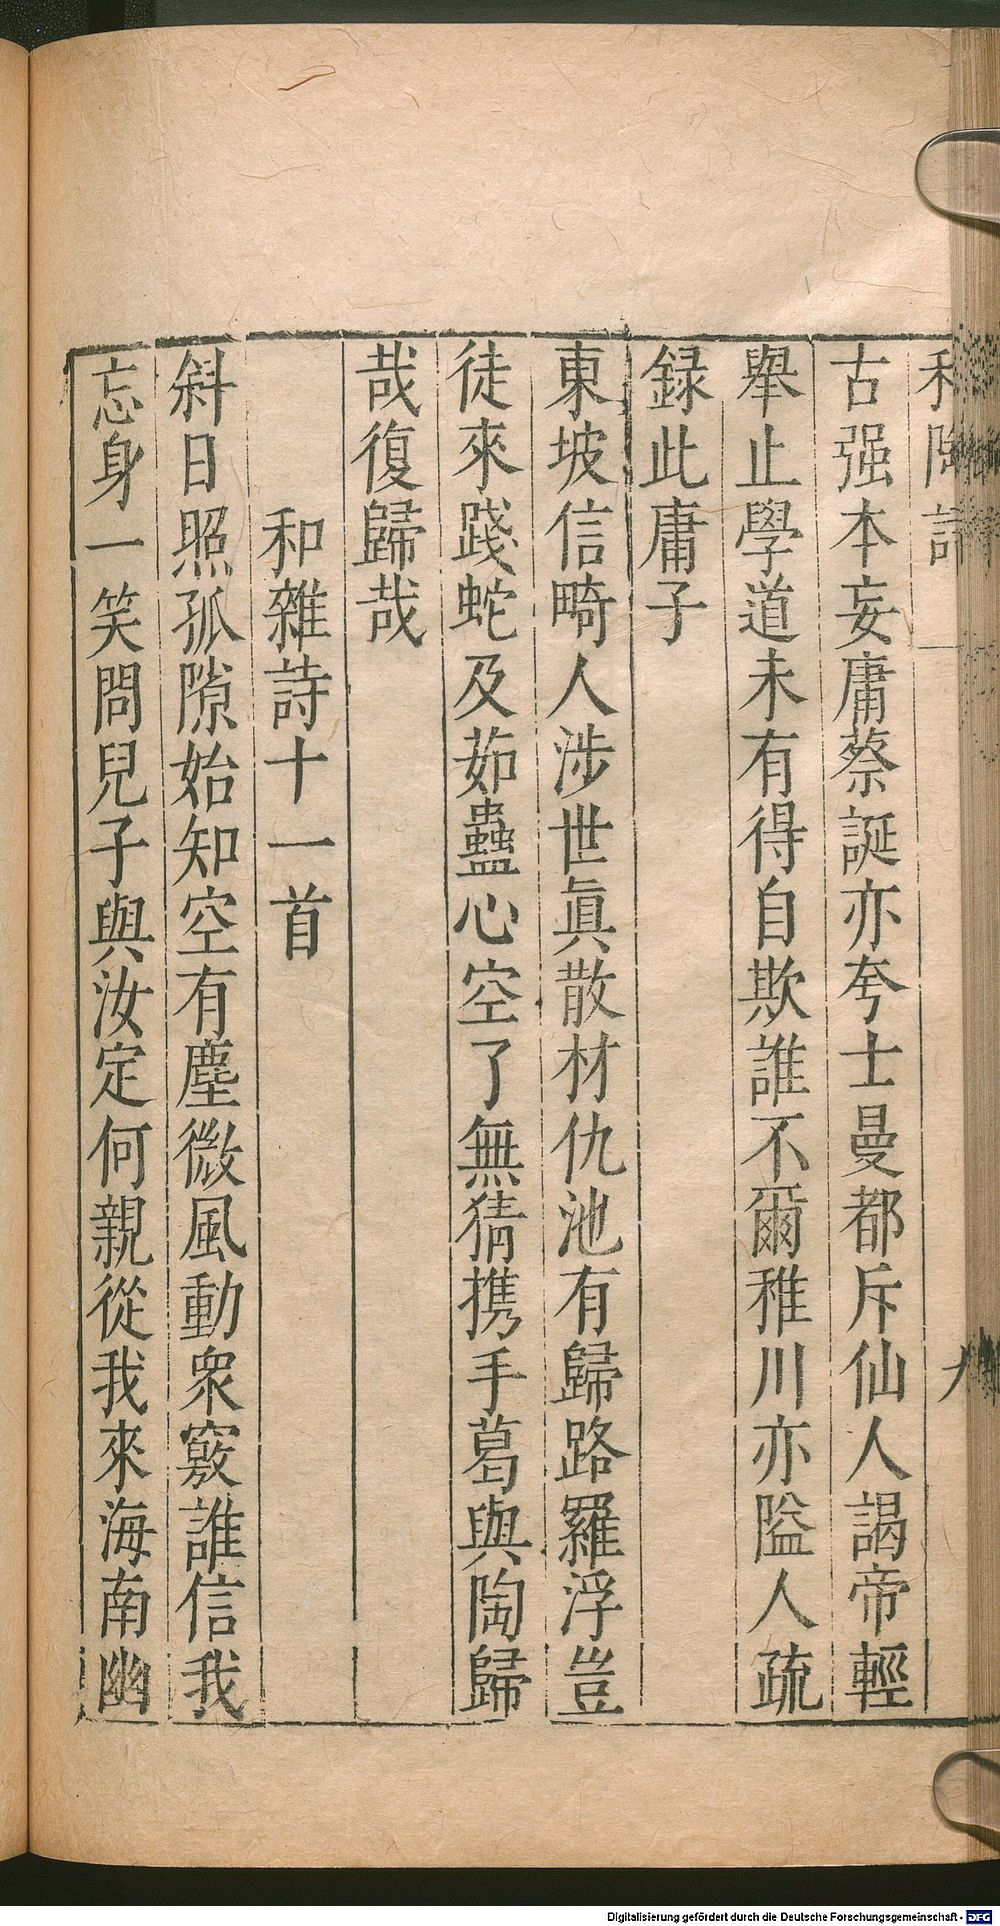 和陶詩
九
古强本妄庸蔡誕亦夸士曼都斥仙人謁帝輕
舉止學道未有得自欺誰不爾稚川亦隘人疏
録此庸子
東坡信畸人涉世眞散材仇池有歸路羅浮豈
徒來踐蛇及茹蠱心空了無猜携手葛與陶歸
哉復歸哉
和雜詩十一首
斜日照孤隙始知空有塵微風動衆竅誰信我
忘身一笑問兒子與汝定何親從我來海南幽
Digitalisierung gefördert durch die Deutsche Forschungsgemeinschaft - DFG